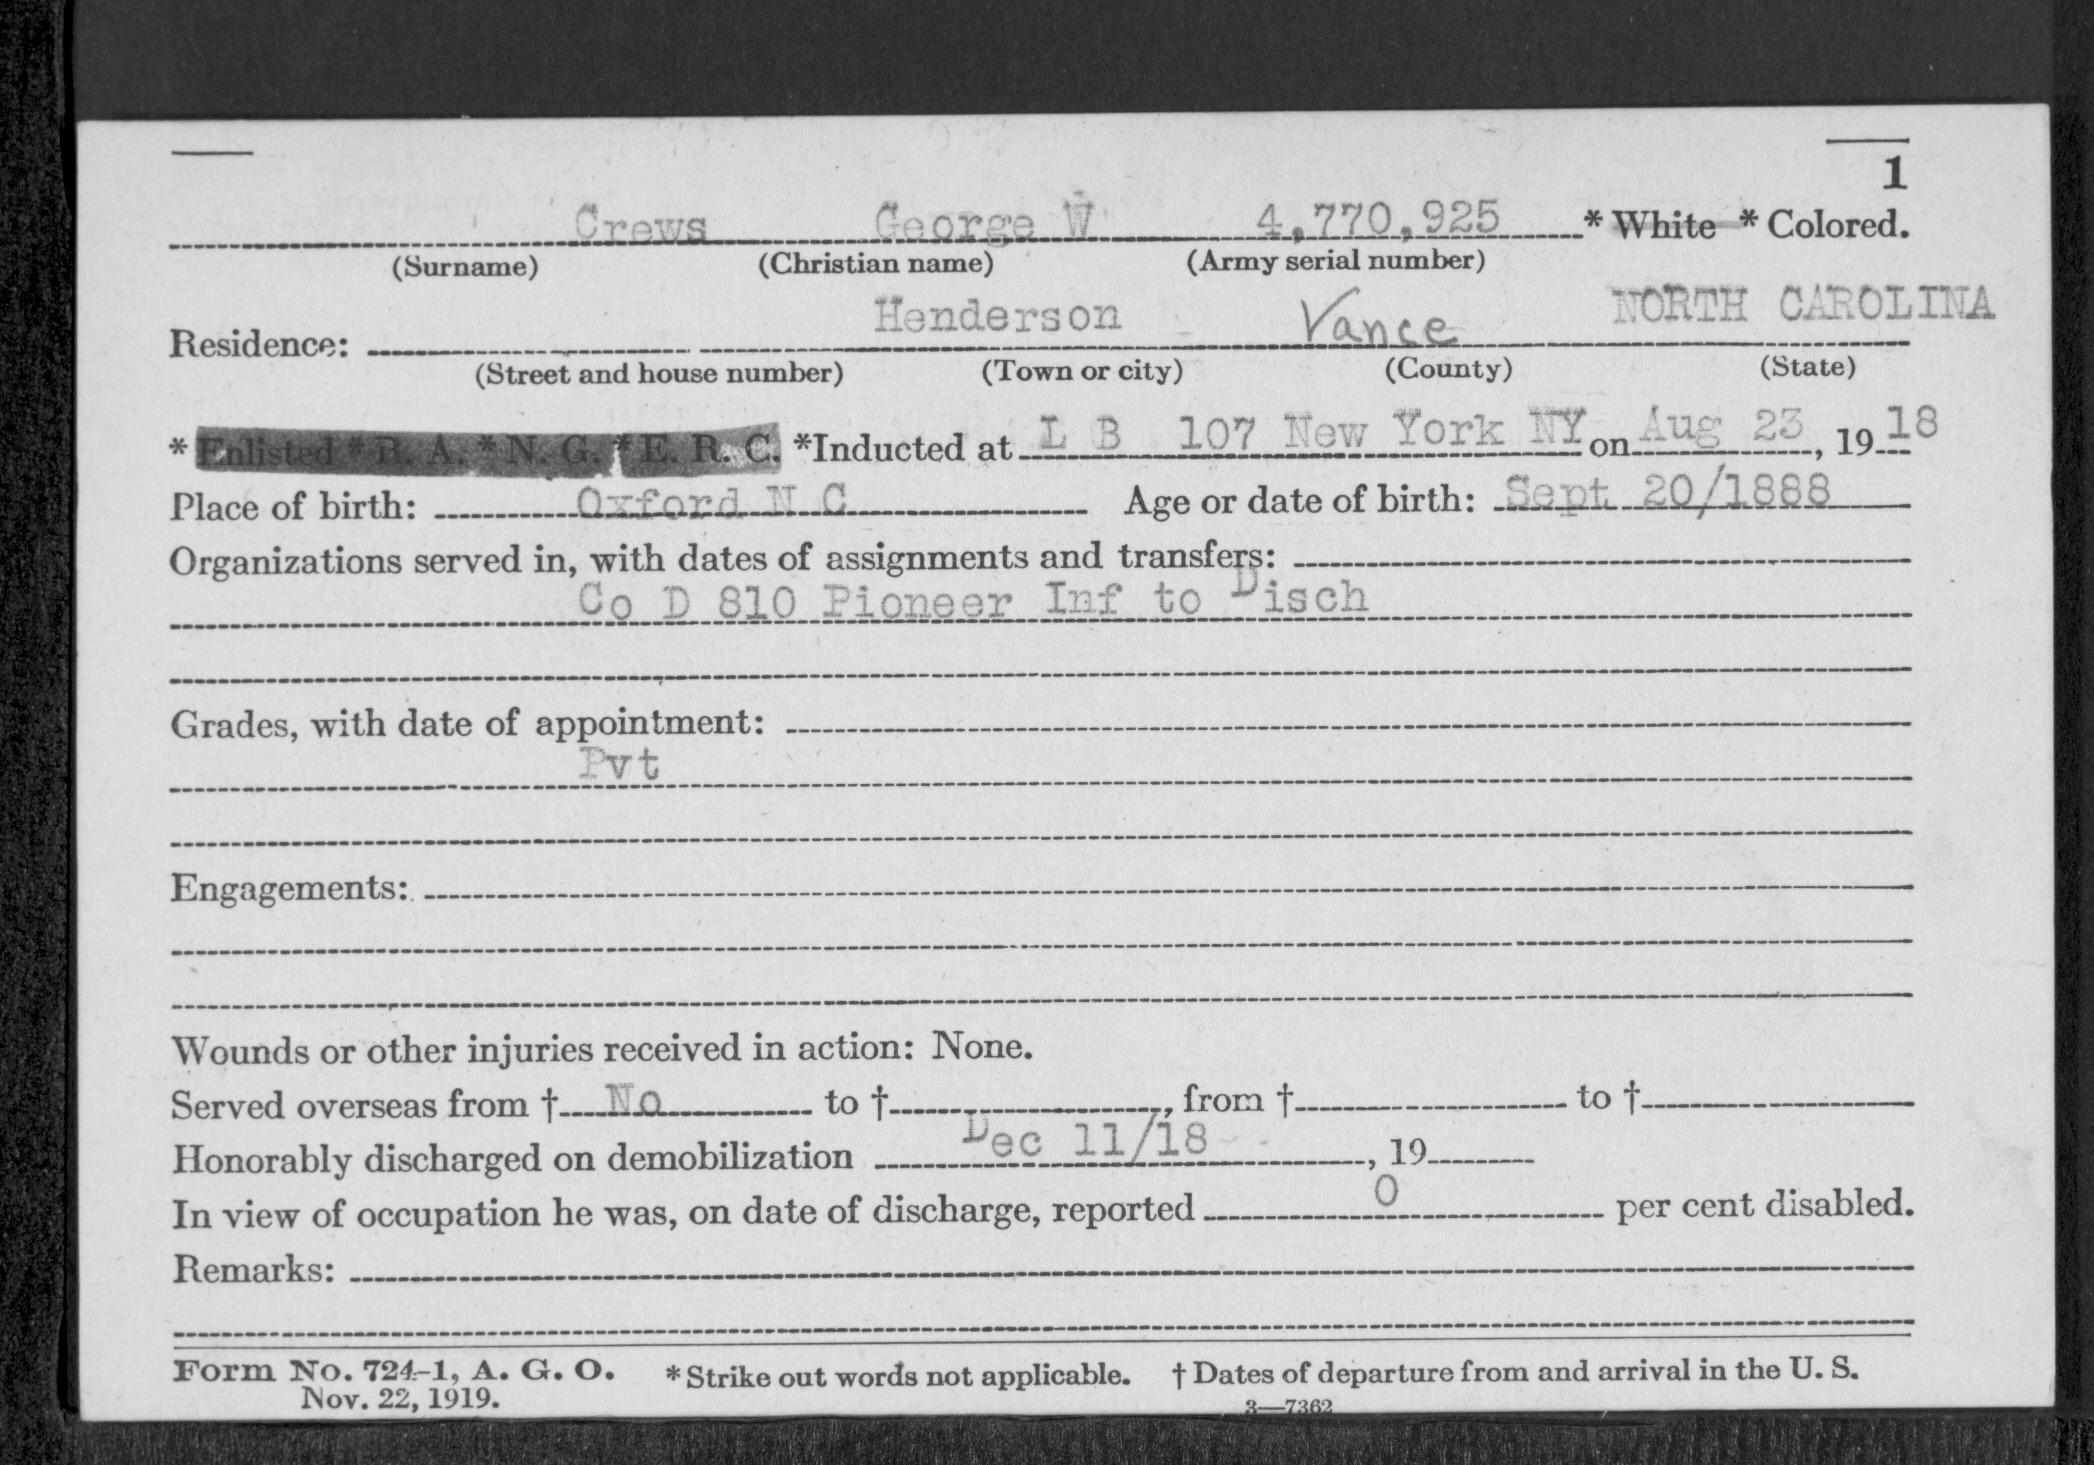 1
Crews George W 4,770,925 * White * Colored.
(Surname) (Christian name) (Army serial number)
Residence: Henderson Vance NORTH CAROLINA
(Street and house number) (Town or city) (County) (State)
* Enlisted * R. A. * N. G. * E. R. C. *Inducted at L B 107 New York NY on Aug 23, 19 18
Place of birth: Oxford N C Age or date of birth: Sept 20/1888
Organizations served in, with dates of assignments and transfers:
Co D 810 Pioneer Inf to Disch
Grades, with date of appointment:
Pvt
Engagements:
Wounds or other injuries received in action: None.
Served overseas from † No to †, from † to †
Honorably discharged on demobilization Dec 11/18, 19
In view of occupation he was, on date of discharge, reported 0 per cent disabled.
Remarks:
Form No. 724-1, A. G. O. * Strike out words not applicable. † Dates of departure from and arrival in the U. S.
Nov. 22, 1919.
3—7362